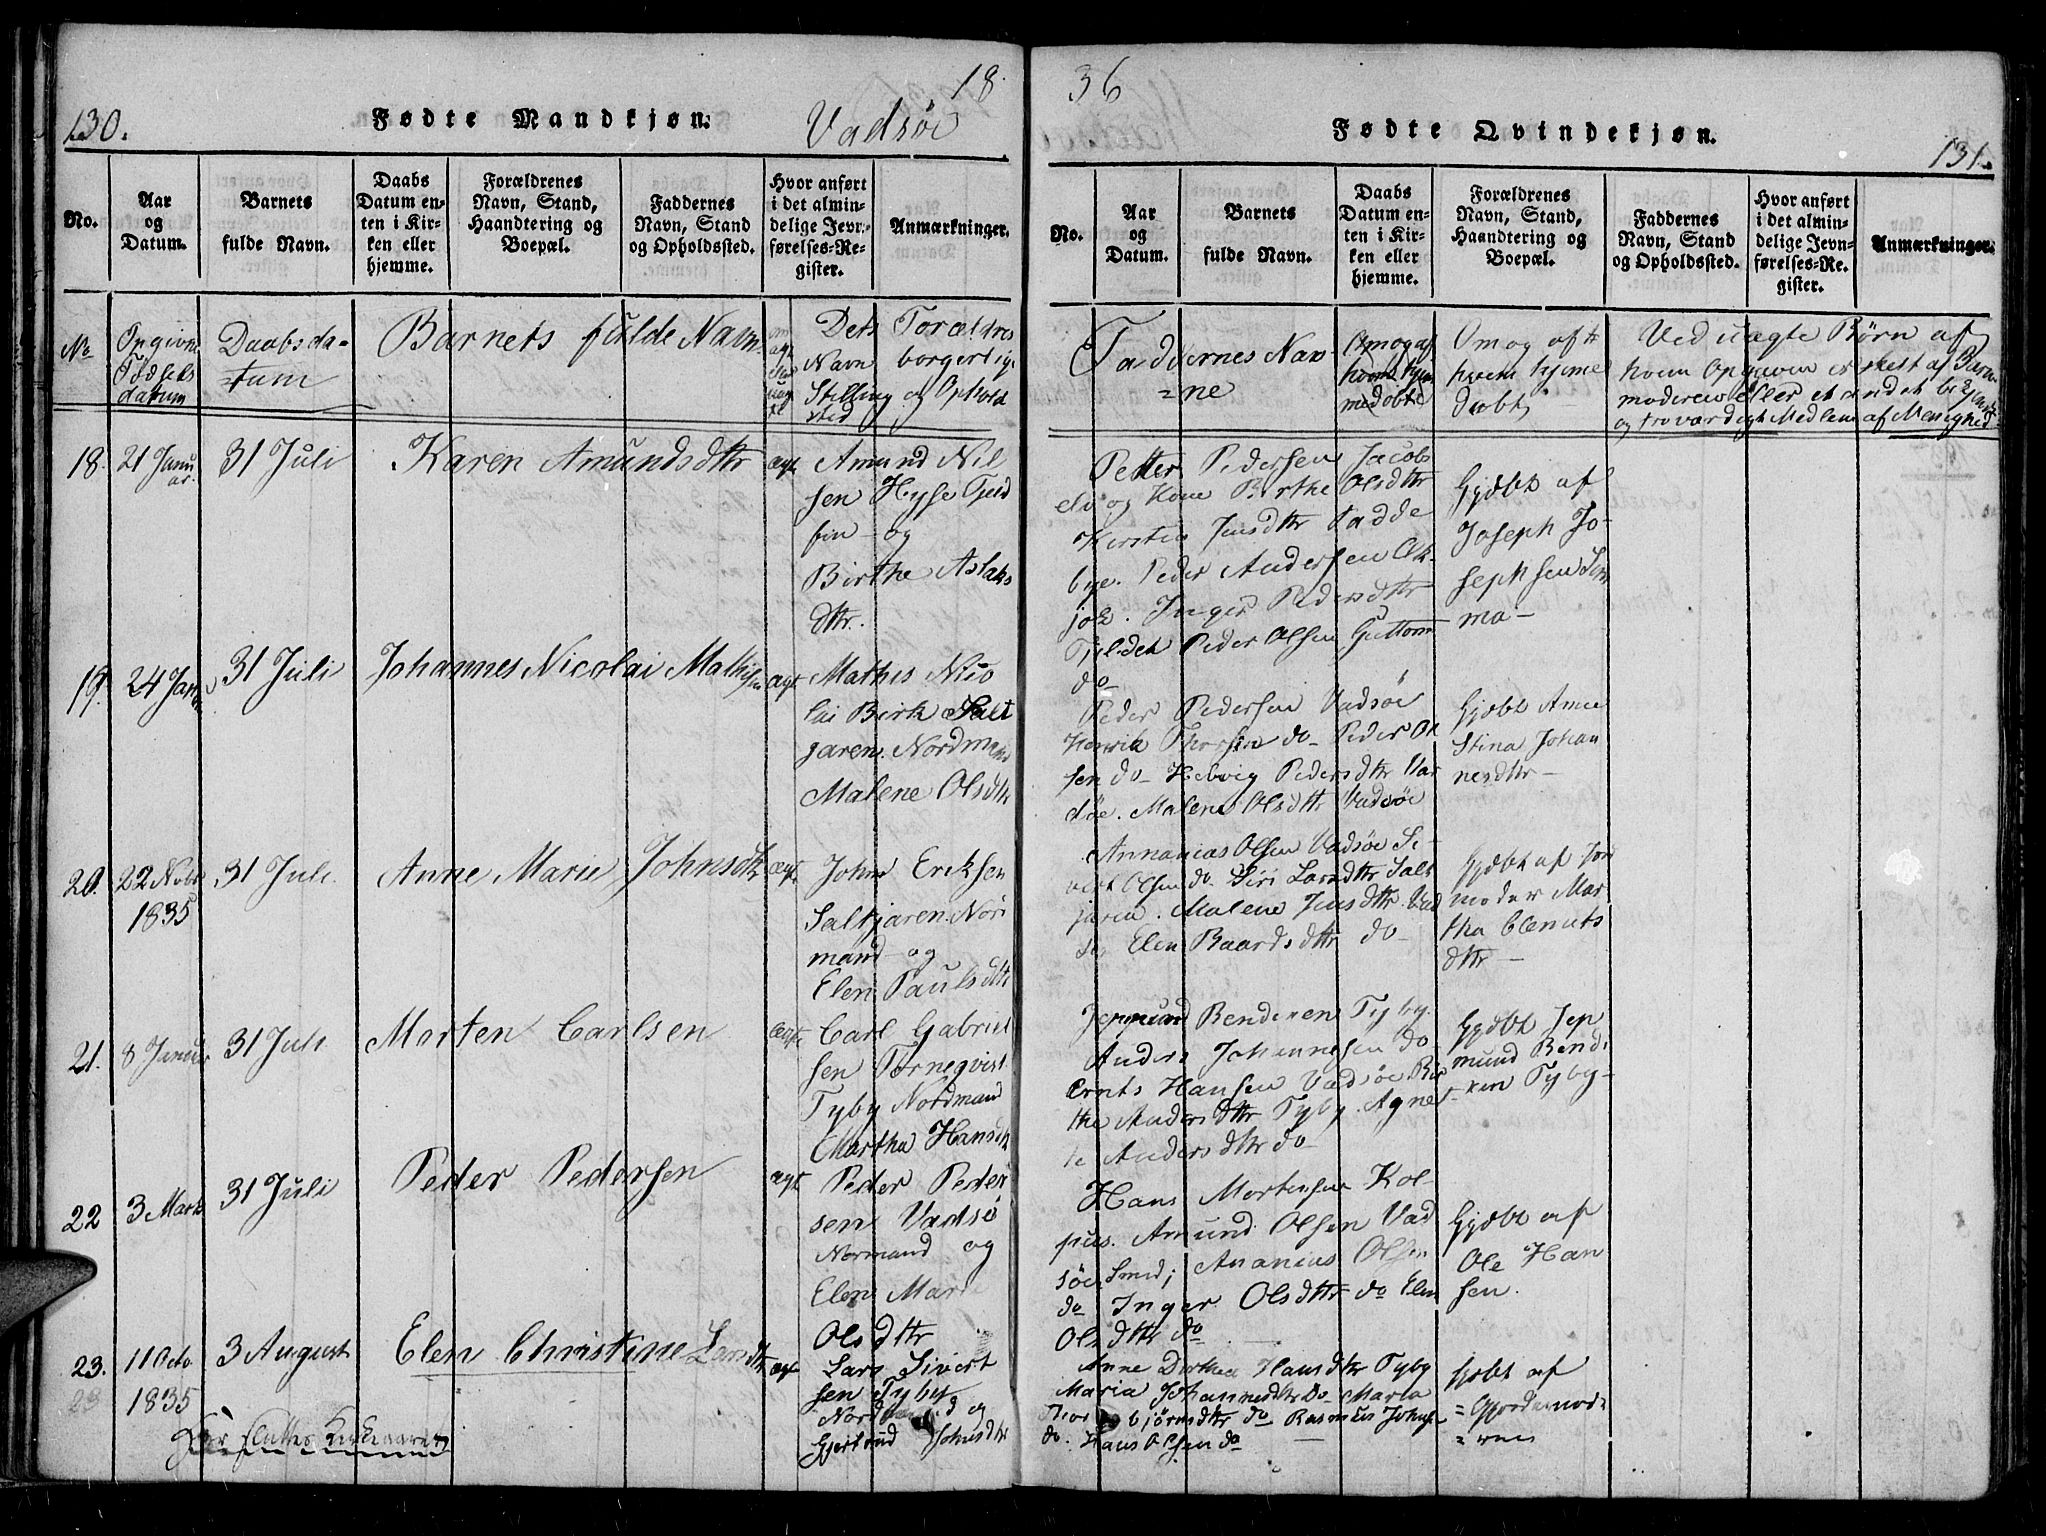 130.
Fødte Mandkjøn.
Vadsøe
18
No.
Aar
og
Datum.
Barnets
fulde Navn.
Daabs
Datum en-
ten i Kir-
ken eller
hjemme.
Forældrenes
Navn, Stand,
Haandtering og
Boepæl.
Faddernes
Navn, Stand
og Opholdssted.
Hvor anført
i det almin-
delige Jevn-
førelses-Re-
gister.
Anmærkninger.
No
Opgivne
Födsels
datum
Daabsda-
=tum
Barnets fulde Navn
om
ægte
eller
uæg
te
Dets Foræ ldres
Navn borgerlige
Stilling og Ophold
sted
18. 21 Janu
ar.
31 Juli
Karen Amundsdtr
ægt
Amund Nil
sen Hysse Fjeld
fin - og
Birthe Aslaks
dtr.
19. 24 Jan
31 Juli
Johannes Nicolai Mathisen
ægt
Mathis Nico
lai Birk Salt
jaren. Nordmand
Malene Olsdtr
20. 22 Nobr
1835
31 Juli
Anne Marie Johnsdtr
ægt
John Eriksen
Saltjaren. Nor
mand - og
Elen Paulsdtr
21. 8 Januar
31 Juli
Morten Carlsen
ægt
Carl Gabriel
sen Törneqvist
Tyby Nordmand
Martha Hansdtr
22 3 Marts
31 Juli
Peder Pedersen
ægt
Peder Peder
sen Vadsö
Normand og
Elen Marie
Olsdtr
23. 11 Octo
1835
3 August
Elen Christine Larsdtr
ægt
Lars Sivert
sen Tyby
Nordmand og
Gjertrud Johnsdtr
23
Her slutter Kirkeaaret
36
Fødte Qvindekjøn.
131.
No.
Aar
og
Datum.
Barnets
fulde Navn.
Daabs
Datum en-
ten i Kir-
ken eller
hjemme.
Forældrenes
Navn, Stand,
Haandtering og
Boepæl.
Faddernes
Navn, Stand
og Opholdssted.
Hvor anført
i det almin-
delige Jevn-
førelses-Re-
gister.
Anmærkninger.
Faddernes Nav-
=ne
Om og af
hvem hjem
medöbt
Om og af
hvem hjeme
döbt
Ved uægte Börn af
hvem Opgaven er skeet af Barne
moderen eller et andet bekjendt
og troværdigt Medlem af Menighed
Petter Pedersen Jacobs
elv og Kone Birthe Olsdtr
Kirsten Jensdtr Padde
bye. Peder Andersen Ek-
jok. Inger Pedersdtr
Fjeldet Peder Olsen Guttorm
do
Gjdöbt af
Joseph Jo-
sephsen
ma-
Peder Pedersen Vadsöe
Henrik Thorsen do- Peder Ol
sen do- Hedvig Pedersdtr Var
döe. Malene Olsdtr Vadsöe
Gjdöbt Anne
Stina Johan
nesdtr-
Annanias Olsen Vadsöe Si-
vert Olsen do. Siri Larsdtr Salt
jaren. Malene Jensdtr Vad
sö, Elen Baardsdtr do
Gjdöbt af Jor
moder Mar
tha Clemets
dtr-
Jepmund Bendixen Tyby
Anders Johannesen do-
Ernts Hansen Vadsöe Bir
the Andersdtr Tyby. Agnet
te Andersdtr do
Gjdöbt Jep
mund Bendi
xen Tyby-
Hans Mortensen Kol-
pus. Amund Olsen Vad
söe Smed; Ananias Olsen
do Inger Olsdtr do Elen
Olsdtr do
Gjdöbt af
Ole Han
sen.
Anne Dorthea Hansdtr Tyby
Maria Johannesdtr do Maria
Thorbjörnsdtr do Rasmus Johns
do. Hans Olsen do
Gjdöbt af
=Gjordemod=
=ren